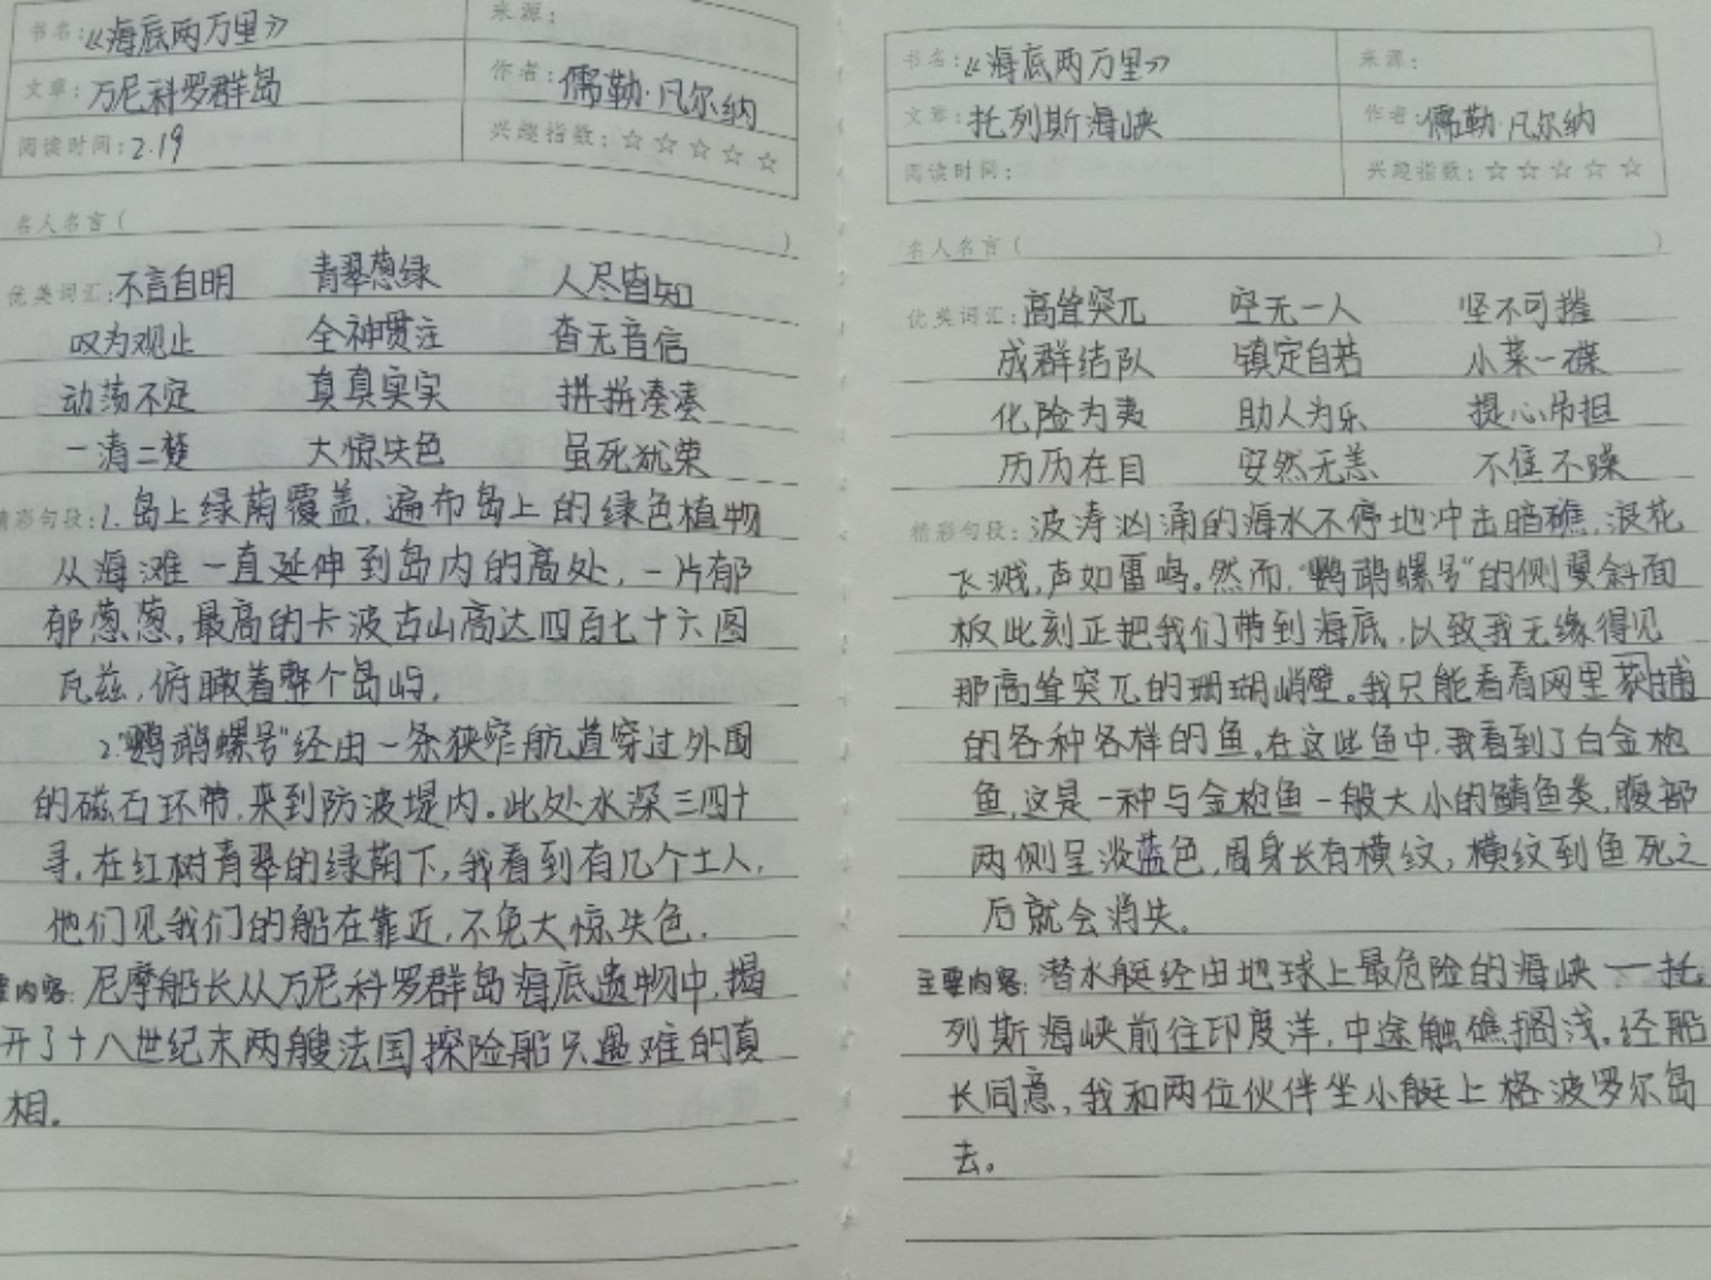 书名:《海底两万里》
来源:
文章:万尼科罗群岛
作者:儒勒·凡尔纳
阅读时间:2.19
兴趣指数:☆☆☆☆☆
名人名言( )
优美词汇:不言自明 青翠葱绿 人尽皆知
叹为观止 全神贯注 杳无音信
动荡不定 真真实实 拼拼凑凑
一清二楚 大惊失色 虽死犹荣
精彩句段:1.岛上绿荫覆盖,遍布岛上的绿色植物
从海滩一直延伸到岛内的高处,一片郁
郁葱葱,最高的卡波古山高达四百七十六图
瓦兹,俯瞰着整个岛屿,
2."鹦鹉螺号"经由一条狭窄航道穿过外围
的磁石环带,来到防波堤内。此处水深三四十
寻,在红树青翠的绿荫下,我看到有几个土人,
他们见我们的船在靠近,不免大惊失色.
主要内容:尼摩船长从万尼科罗群岛海底遗物中,揭
开了十八世纪末两艘法国探险船只遇难的真
相。
书名:《海底两万里》
来源:
文章:托列斯海峡
作者:儒勒·凡尔纳
阅读时间:
兴趣指数:☆☆☆☆☆
名人名言( )
优美词汇:高耸突兀 空无一人 坚不可摧
成群结队 镇定自若 小菜一碟
化险为夷 助人为乐 提心吊担
历历在目 安然无恙 不焦不躁
精彩句段:波涛汹涌的海水不停地冲击暗礁,浪花
飞溅,声如雷鸣。然而,"鹦鹉螺号"的侧翼斜面
板此刻正把我们带到海底,以致我无缘得见
那高耸突兀的珊瑚峭壁。我只能看看网里获捕
的各种各样的鱼,在这些鱼中,我看到了白金枪
鱼,这是一种与金枪鱼一般大小的鲭鱼类,腹部
两侧呈淡蓝色,周身长有横纹,横纹到鱼死之
后就会消失。
主要内容:潜水艇经由地球上最危险的海峡—托
列斯海峡前往印度洋,中途触礁搁浅。经船
长同意,我和两位伙伴坐小艇上格波罗尔岛
去。